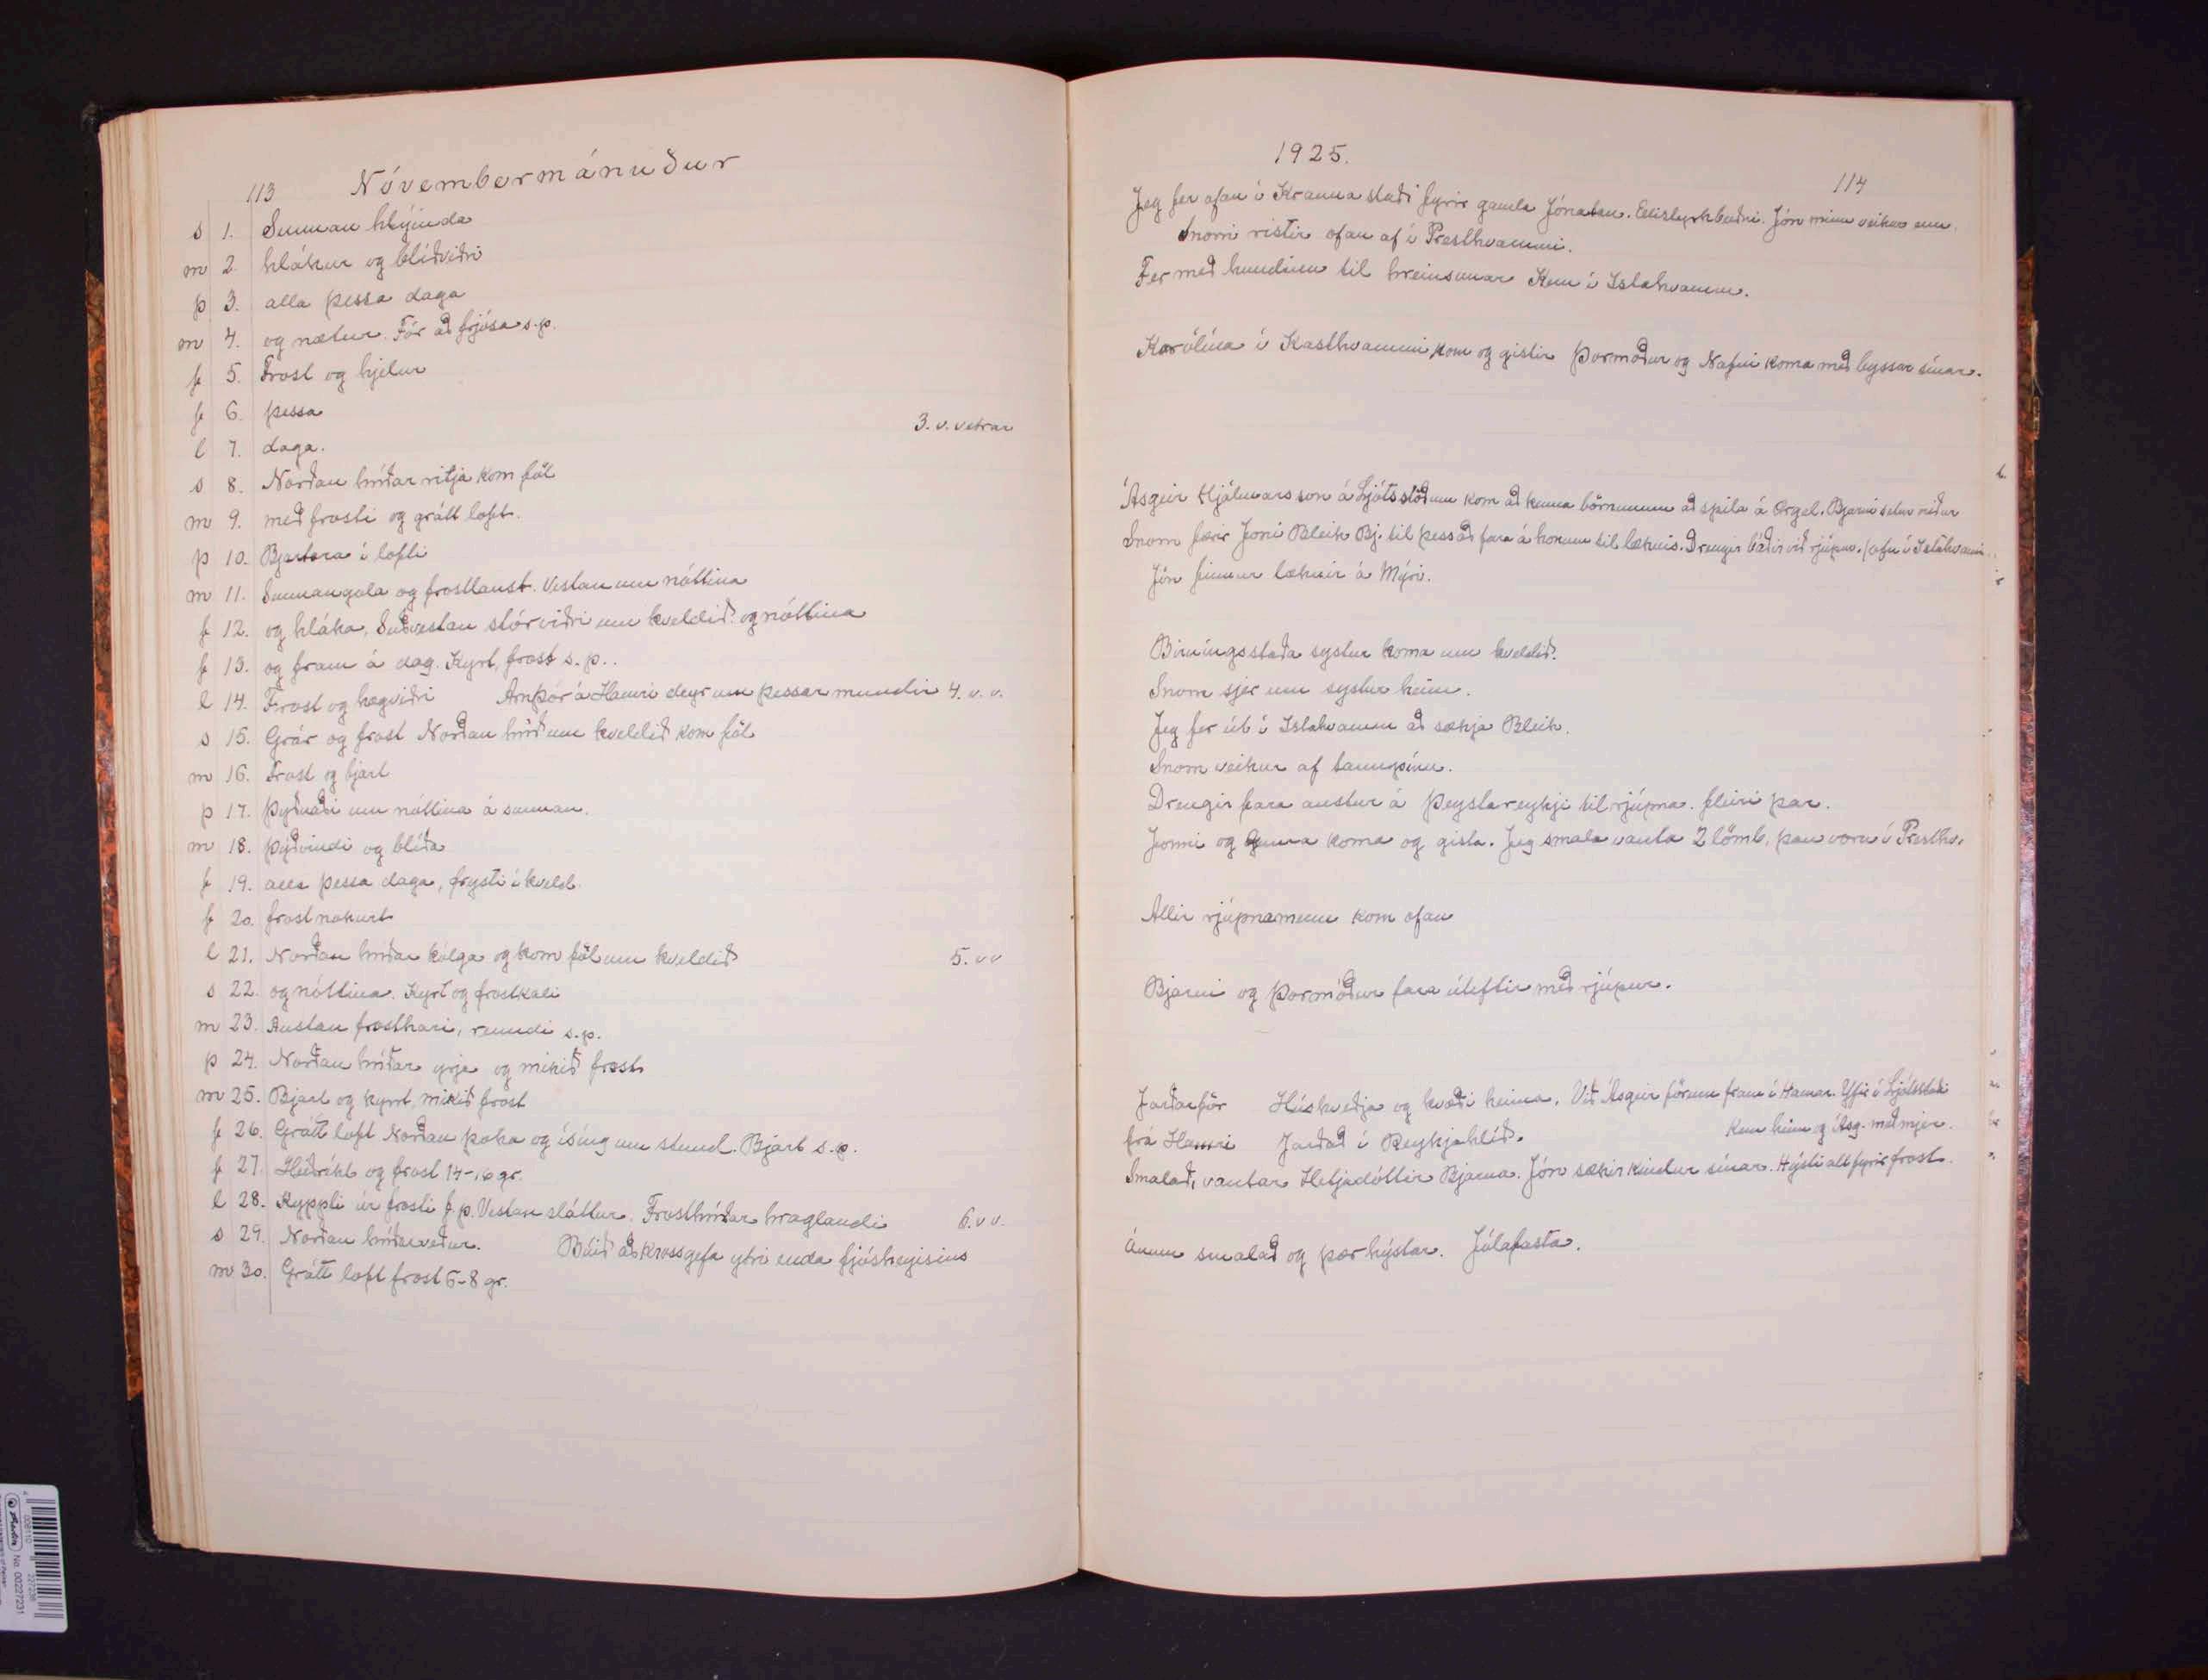 113 Nóvembermánuður
s 1. Sunnan hlýinda
m 2. hlákur og blíðviðri
þ 3. alla þessa daga
m 4. og nætur. Fór að frjósa s.p.
f 5. Frost og hjelur
f 6. þessa
l 7. daga. 3. v. vetrar
s 8. Norðan hríðar ritja kom föl
m 9. með frosti og grátt loft.
þ 10. Bjartara í lofti
m 11. Sunnangola og frostlaust. Vestan um nóttina
f 12. og hláka, Suðvestan stórviðri um kveldið og nóttina
f 13. og fram á dag. Kyrt, frost s. p..
l 14. Frost og hægviðri Arnþór á Hamri deyr um þessar mundir 4. v. v.
s 15. Grár og frost Norðan hríð um kveldið kom föl
m 16. Frost og bjart
þ 17. Þyðnaði um nóttina á sunnan.
m 18. þýðvindi og blíða
f 19. alla þessa daga, frysti í kveld
f 20. frost nokurt
l 21. Norðan hríðar kólga og kom föl um kveldið 5. v v
s 22. og nóttina. Kyrt og frostkali
m 23. Austan frosthari, renndi s.p.
þ 24. Norðan hríðar yrja og mikið frost
m 25. Bjart og kyrrt, mikið frost
f 26. Grátt loft Norðan þoka og ísing um stund. Bjart s. p.
f 27. Heiðríkt og frost 14-16 gr.
l 28. Kyppti úr frosti f. p. Vestan sláttur. Frosthríðar hraglandi 6. v v.
s 29. Norðan hríðarveður. Búið að krossgefa ytri enda fjósheyisins
m 30. Grátt loft frost 6-8 gr.
1925.
114
Jeg fer ofan í Krauna staði fyrir gamla Jónatan. Ellistyrkbeiðni. Jón minn veikur enn.
Snorri ristir ofan af í Presthvammi.
Fer með hundinn til hreinsunar Kem í Islahvamm.
Karólína í Kasthvammi kom og gistir Þormóður og Nafni koma með byssur sínar.
Ásgeir Hjálmarsson á Ljótsstöðum kom að kenna börnunum að spila á Orgel. Bjarni setur niður
Snorri færir Jóni Bleik Bj. til þess að fara á honum til læknis. Drengir báðir við rjúpur. Jafn í Islahvammi
Jón finnur læknir á Mýri.
Birningsstaða systur koma um kveldið.
Snorri sjer um systur heim.
Jeg fer út í Islahvamm að sækja Bleik.
Snorri veikur af tannpínu.
Drengir fara austur á Þeystareykji til rjúpna. fleiri þar.
Jonni og Gunna koma og gista. Jeg smala vanta 2 lömb, þau voru í Presthv.
Allir rjúpnamenn kom ofan
Bjarni og Þormóður fara úteftir með rjúpur.
Jarðarför Húskveðja og kvæði heima. Við Ásgeir förum fram í Hamar. Yfir í Ljótsstaði
frá Hamri Jarðað í Reykjahlíð. Kem heim og Ásg. með mjer.
Smalað, vantar Hetjudóttir Bjarna. Jón sækir kindur sínar. Hýsti alt fyrir frost.
Ánum smalað og þær hýstar. Júlafasta.